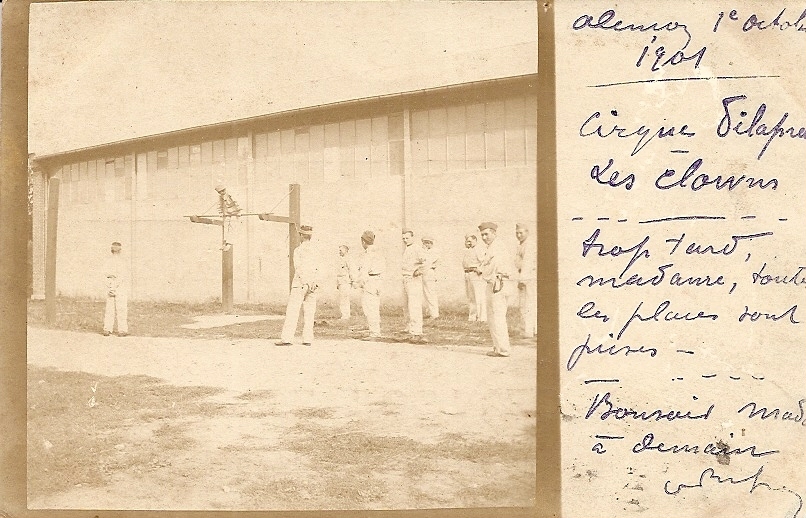 1e octob
1901
Cirques
Les Clowns
trop tard,
madame, toute
les places sont
prises -
Bonsoir mada
à demain